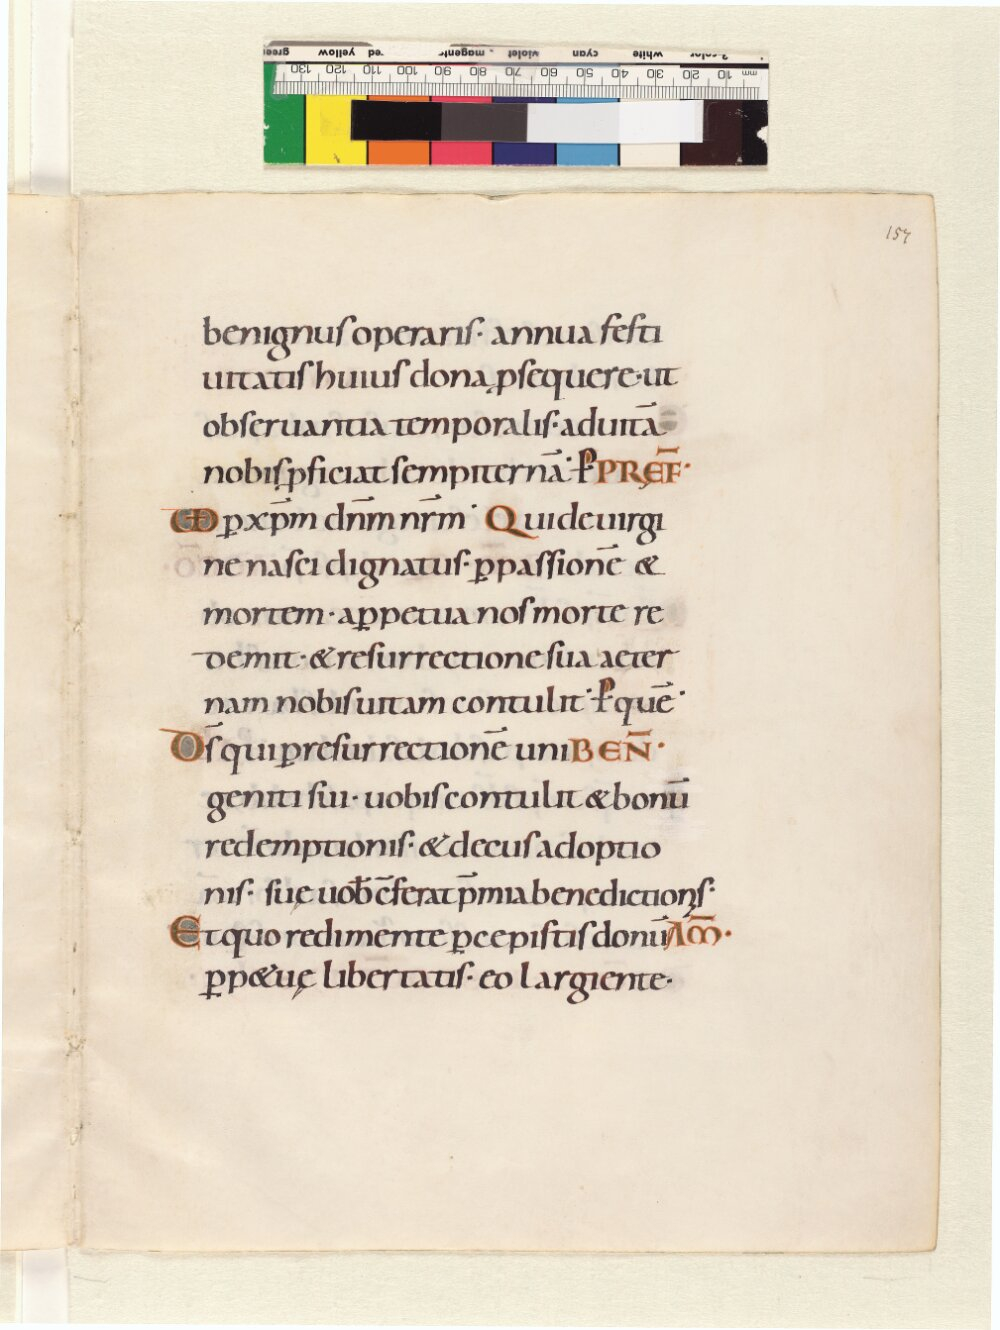 green yellow red magenta violet cyan white 3-color
130 120 110 100 90 80 70 60 50 40 30 20 10 mm
157
benignus operaris· annua festi
uitatis huius dona ꝓsequere· ut
obseruantia temporalis· ad uitā
nobis ꝓficiat sempiternā· ꝑ PRĘF̄·
UD ꝑ xp̄m dn̄m nr̄m· Qui de uirgi
ne nasci dignatus· ꝑ passionē &
mortem· a ꝑpetua nos morte re
demit· & resurrectione sua aeter
nam nobis uitam contulit· ꝑ quē·
Ds̄ qui ꝑ resurrectionē uni BEN̄·
geniti sui· uobis contulit & bonū
redemptionis· & decus adoptio
nis· suę uob̄ cōferat p̄mia benedictioñs·
Et quo redimente ꝑcepistis donū AM̄·
ꝑp&uę libertatis· eo largiente·